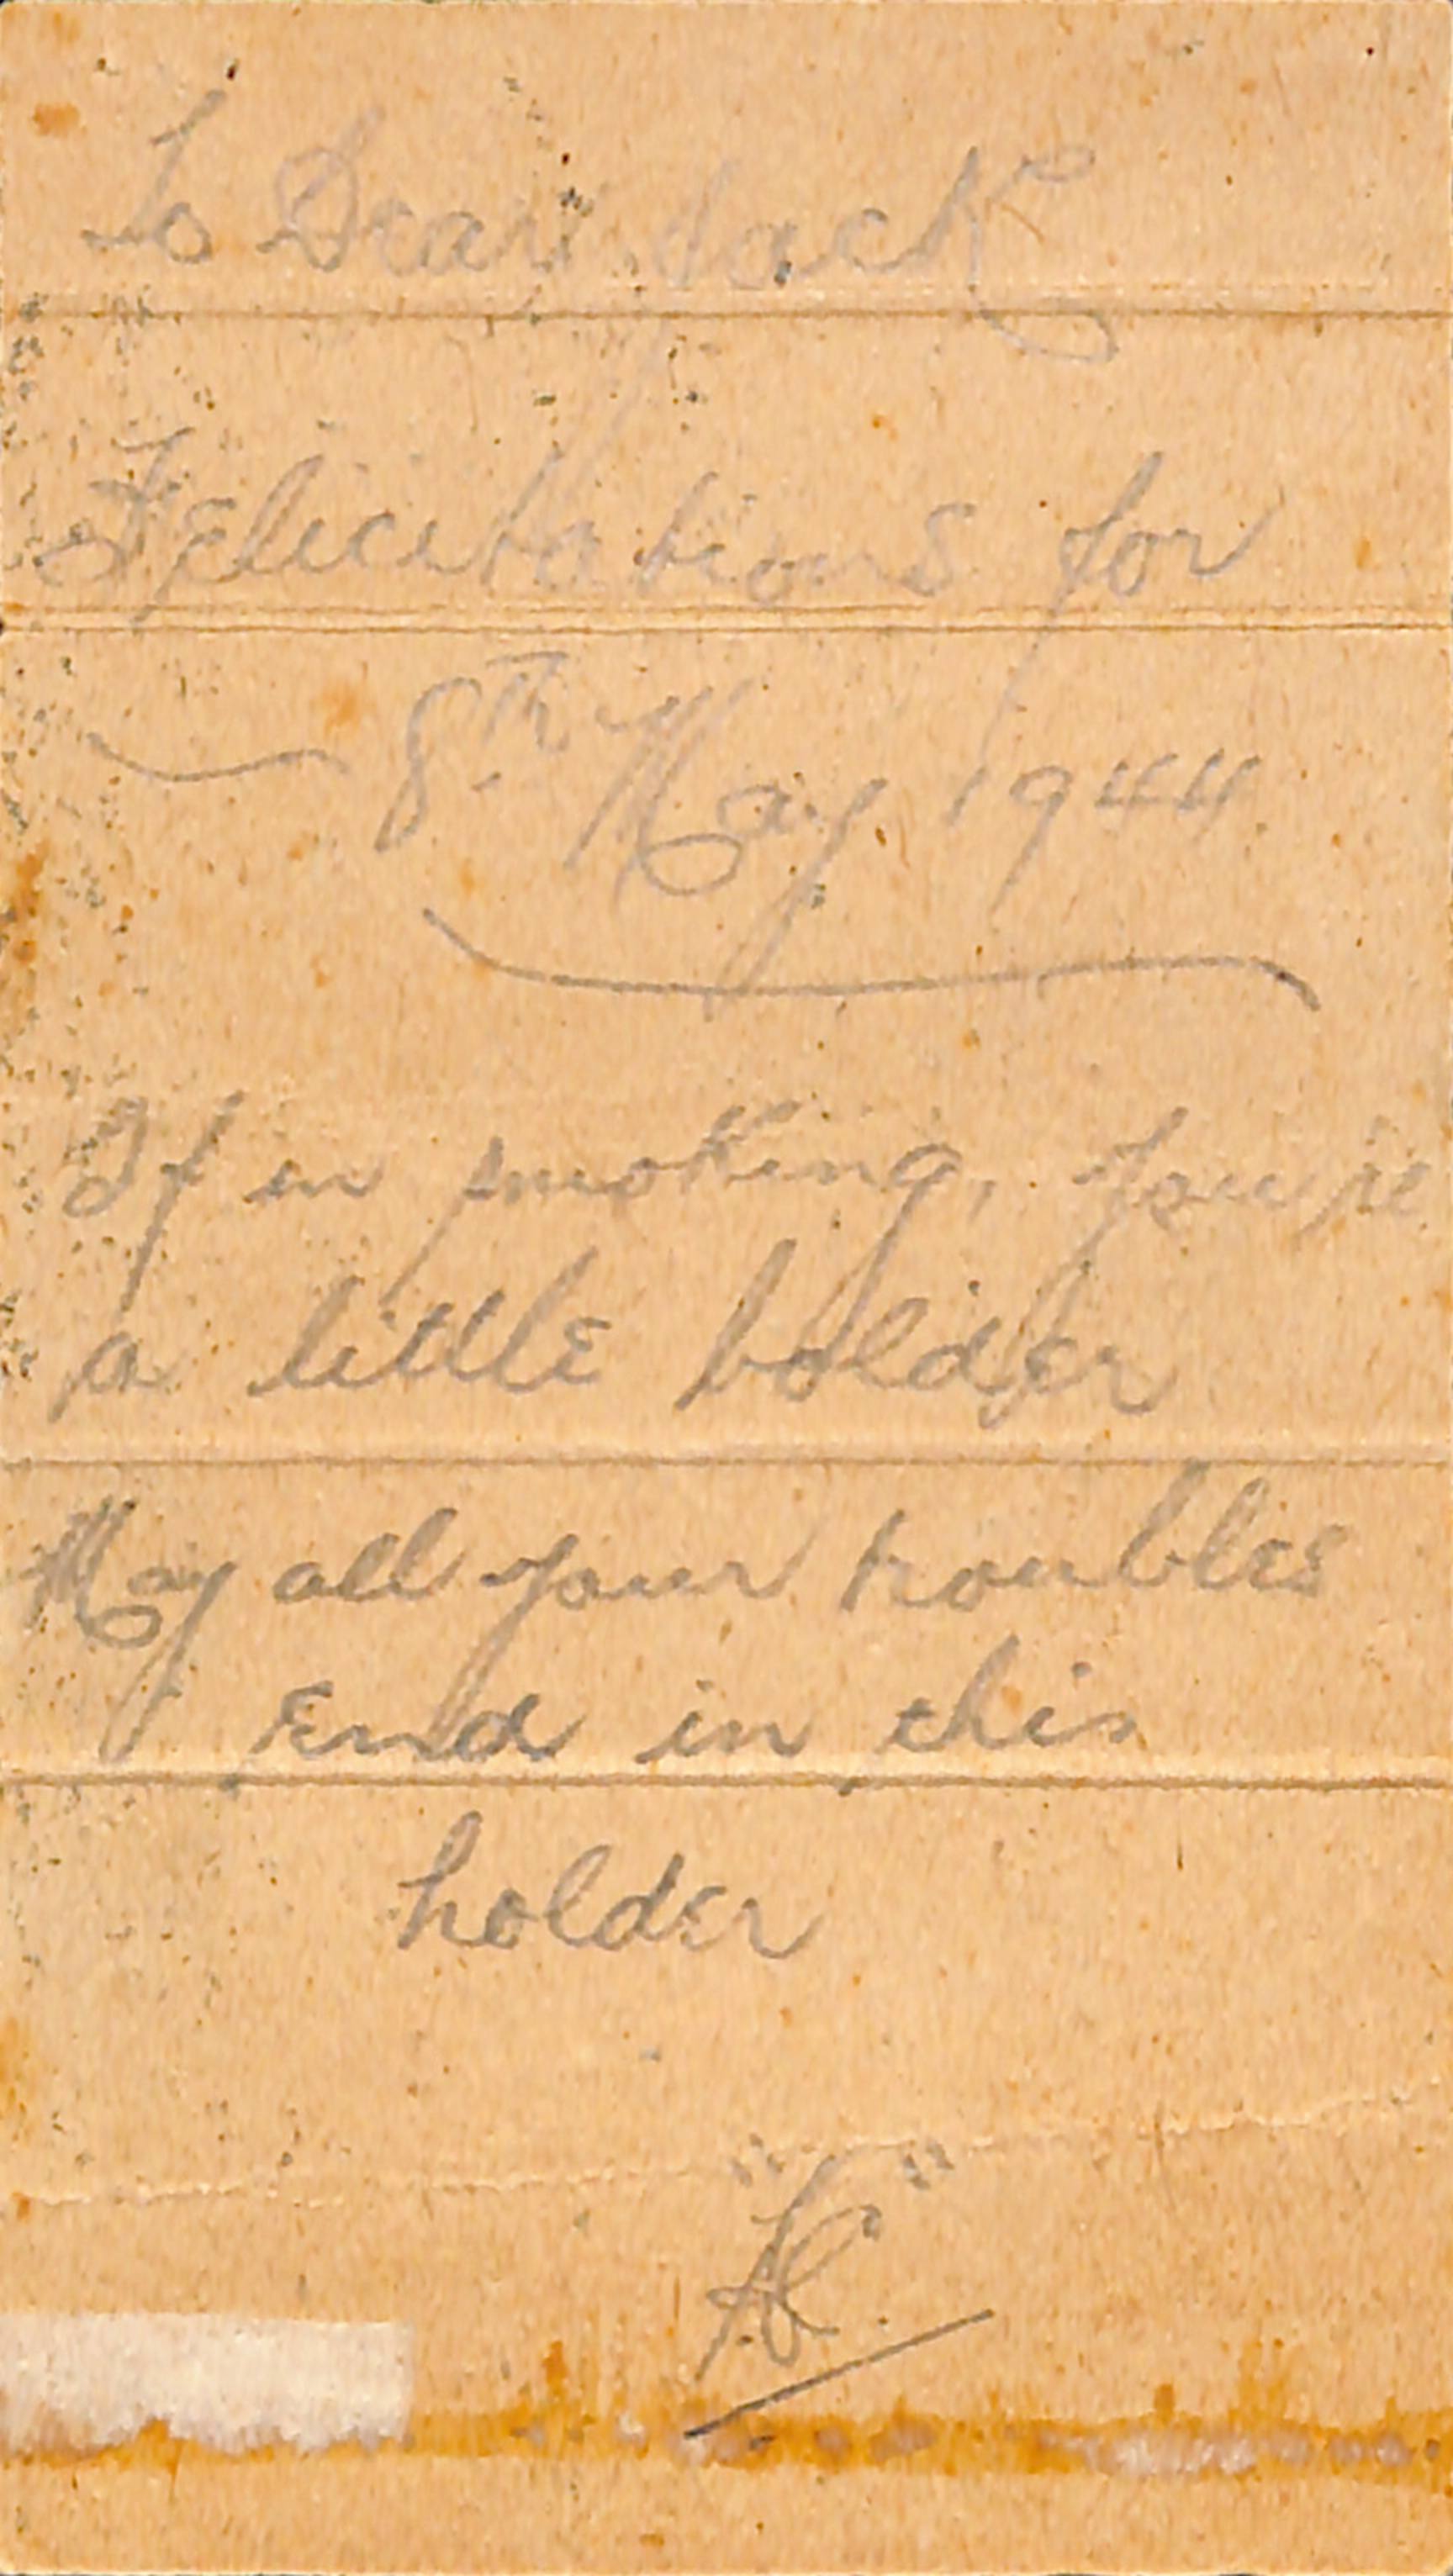 To Dear Jack
Felicitations for
8th May 1944
If in smoking, you're
a little bolder
May all your troubles
End in this
holder